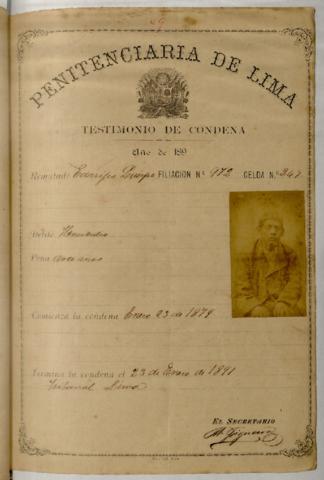 PENITENCIARIA DE LIMA
TESTIMONIO DE CONDENA
Año de 189
Rematado FILIACION N.º 972 CELDA N.º 247
Delito Homicidio
Pena doce años
Comienza la condena Enero 23 de 1879
Termina la condena el 23 de Enero de 1891
Tribunal Lima
EL SECRETARIO